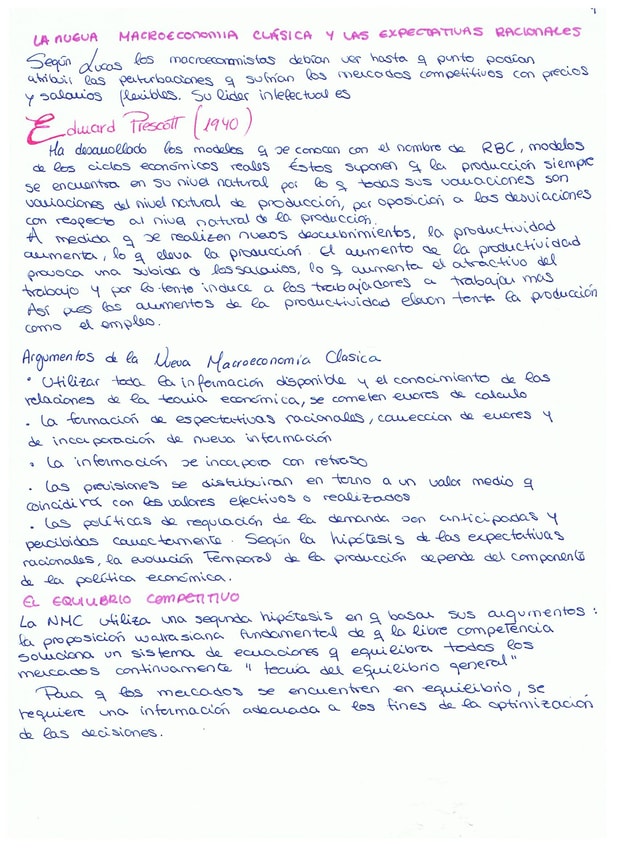 1
LA NUEVA MACROECONOMIA CLÁSICA Y LAS EXPECTATIVAS RACIONALES
Según Lucas los macroeconomistas debían ver hasta q punto podían
atribuir las perturbaciones q sufrían los mercados competitivos con precios
y salarios flexibles. Su líder intelectual es
Edward Prescott (1940)
Ha desarrollado los modelos q se conocen con el nombre de RBC, modelos
de los ciclos económicos reales Éstos suponen q la producción siempre
se encuentra en su nivel natural por lo q todas sus variaciones son
variaciones del nivel natural de producción, por oposición a las desviaciones
con respecto al nivel natural de la producción.
A medida q se realizen nuevos descubrimientos, la productividad
aumenta, lo q eleva la producción. El aumento de la productividad
provoca una subida d los salarios, lo q aumenta el atractivo del
trabajo y por lo tanto induce a los trabajadores a trabajar más
Así pues los aumentos de la productividad elevan tanto la producción
como el empleo.
Argumentos de la Nueva Macroeconomía Clasica
• Utilizar toda la información disponible y el conocimiento de las
relaciones de la teoría económica, se cometen errores de calculo
. La formación de espectativas racionales, corrección de errores y
de incorporación de nueva información
. La información se incorpora con retraso
. Las previsiones se distribuiran en torno a un valor medio q
coincidirá con los valores efectivos o realizados
. Las políticas de regulación de la demanda son anticipadas y
percibidas correctamente. Según la hipótesis de las expectativas
racionales, la evolución Temporal de la producción depende del componente
de la política económica.
EL EQUILIBRIO COMPETITIVO
La NMC utiliza una segunda hipótesis en q basar sus argumentos :
la proposición walrasiana fundamental de q la libre competencia
soluciona un sistema de ecuaciones q equilibra todos los
mercados continuamente " teoría del equilibrio general"
Para q los mercados se encuentren en equilibrio, se
requiere una información adecuada a los fines de la optimización
de las decisiones.